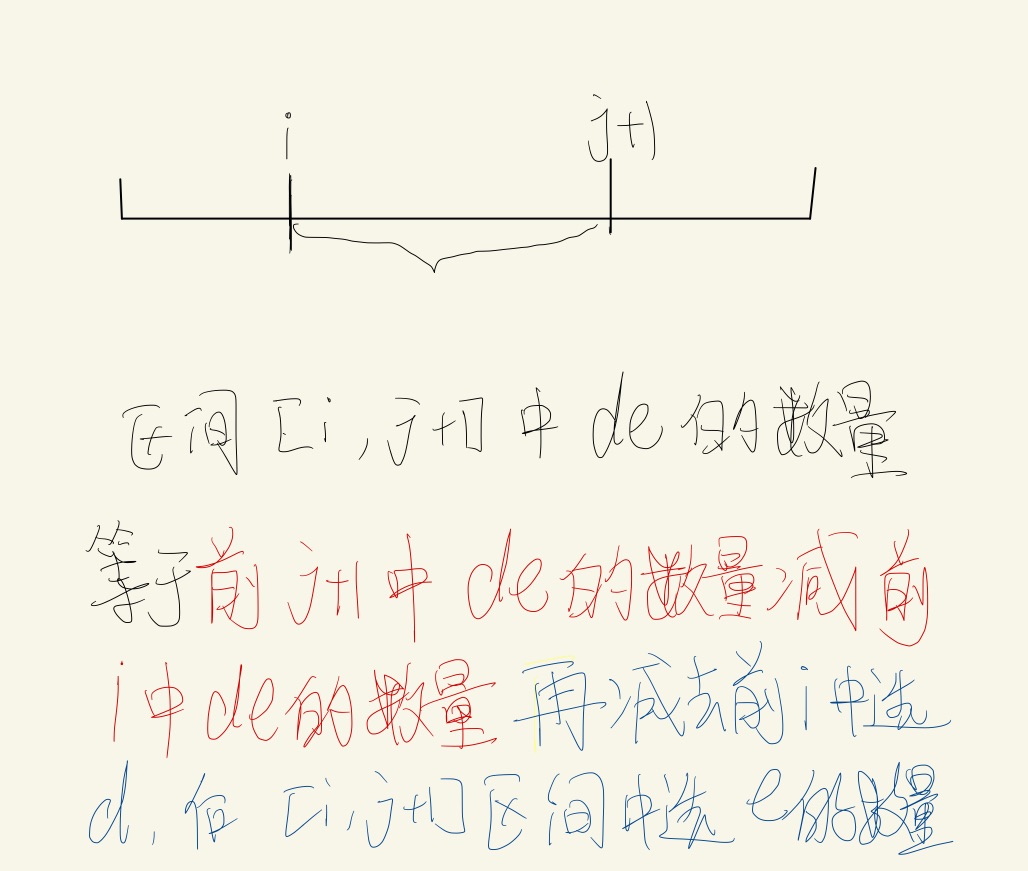 i
j+1
区间[i,j+1]中de的数量
等于前j+1中de的数量减前
i中de的数量再减去前i中选
d,在[i,j+1]区间中选e的数量